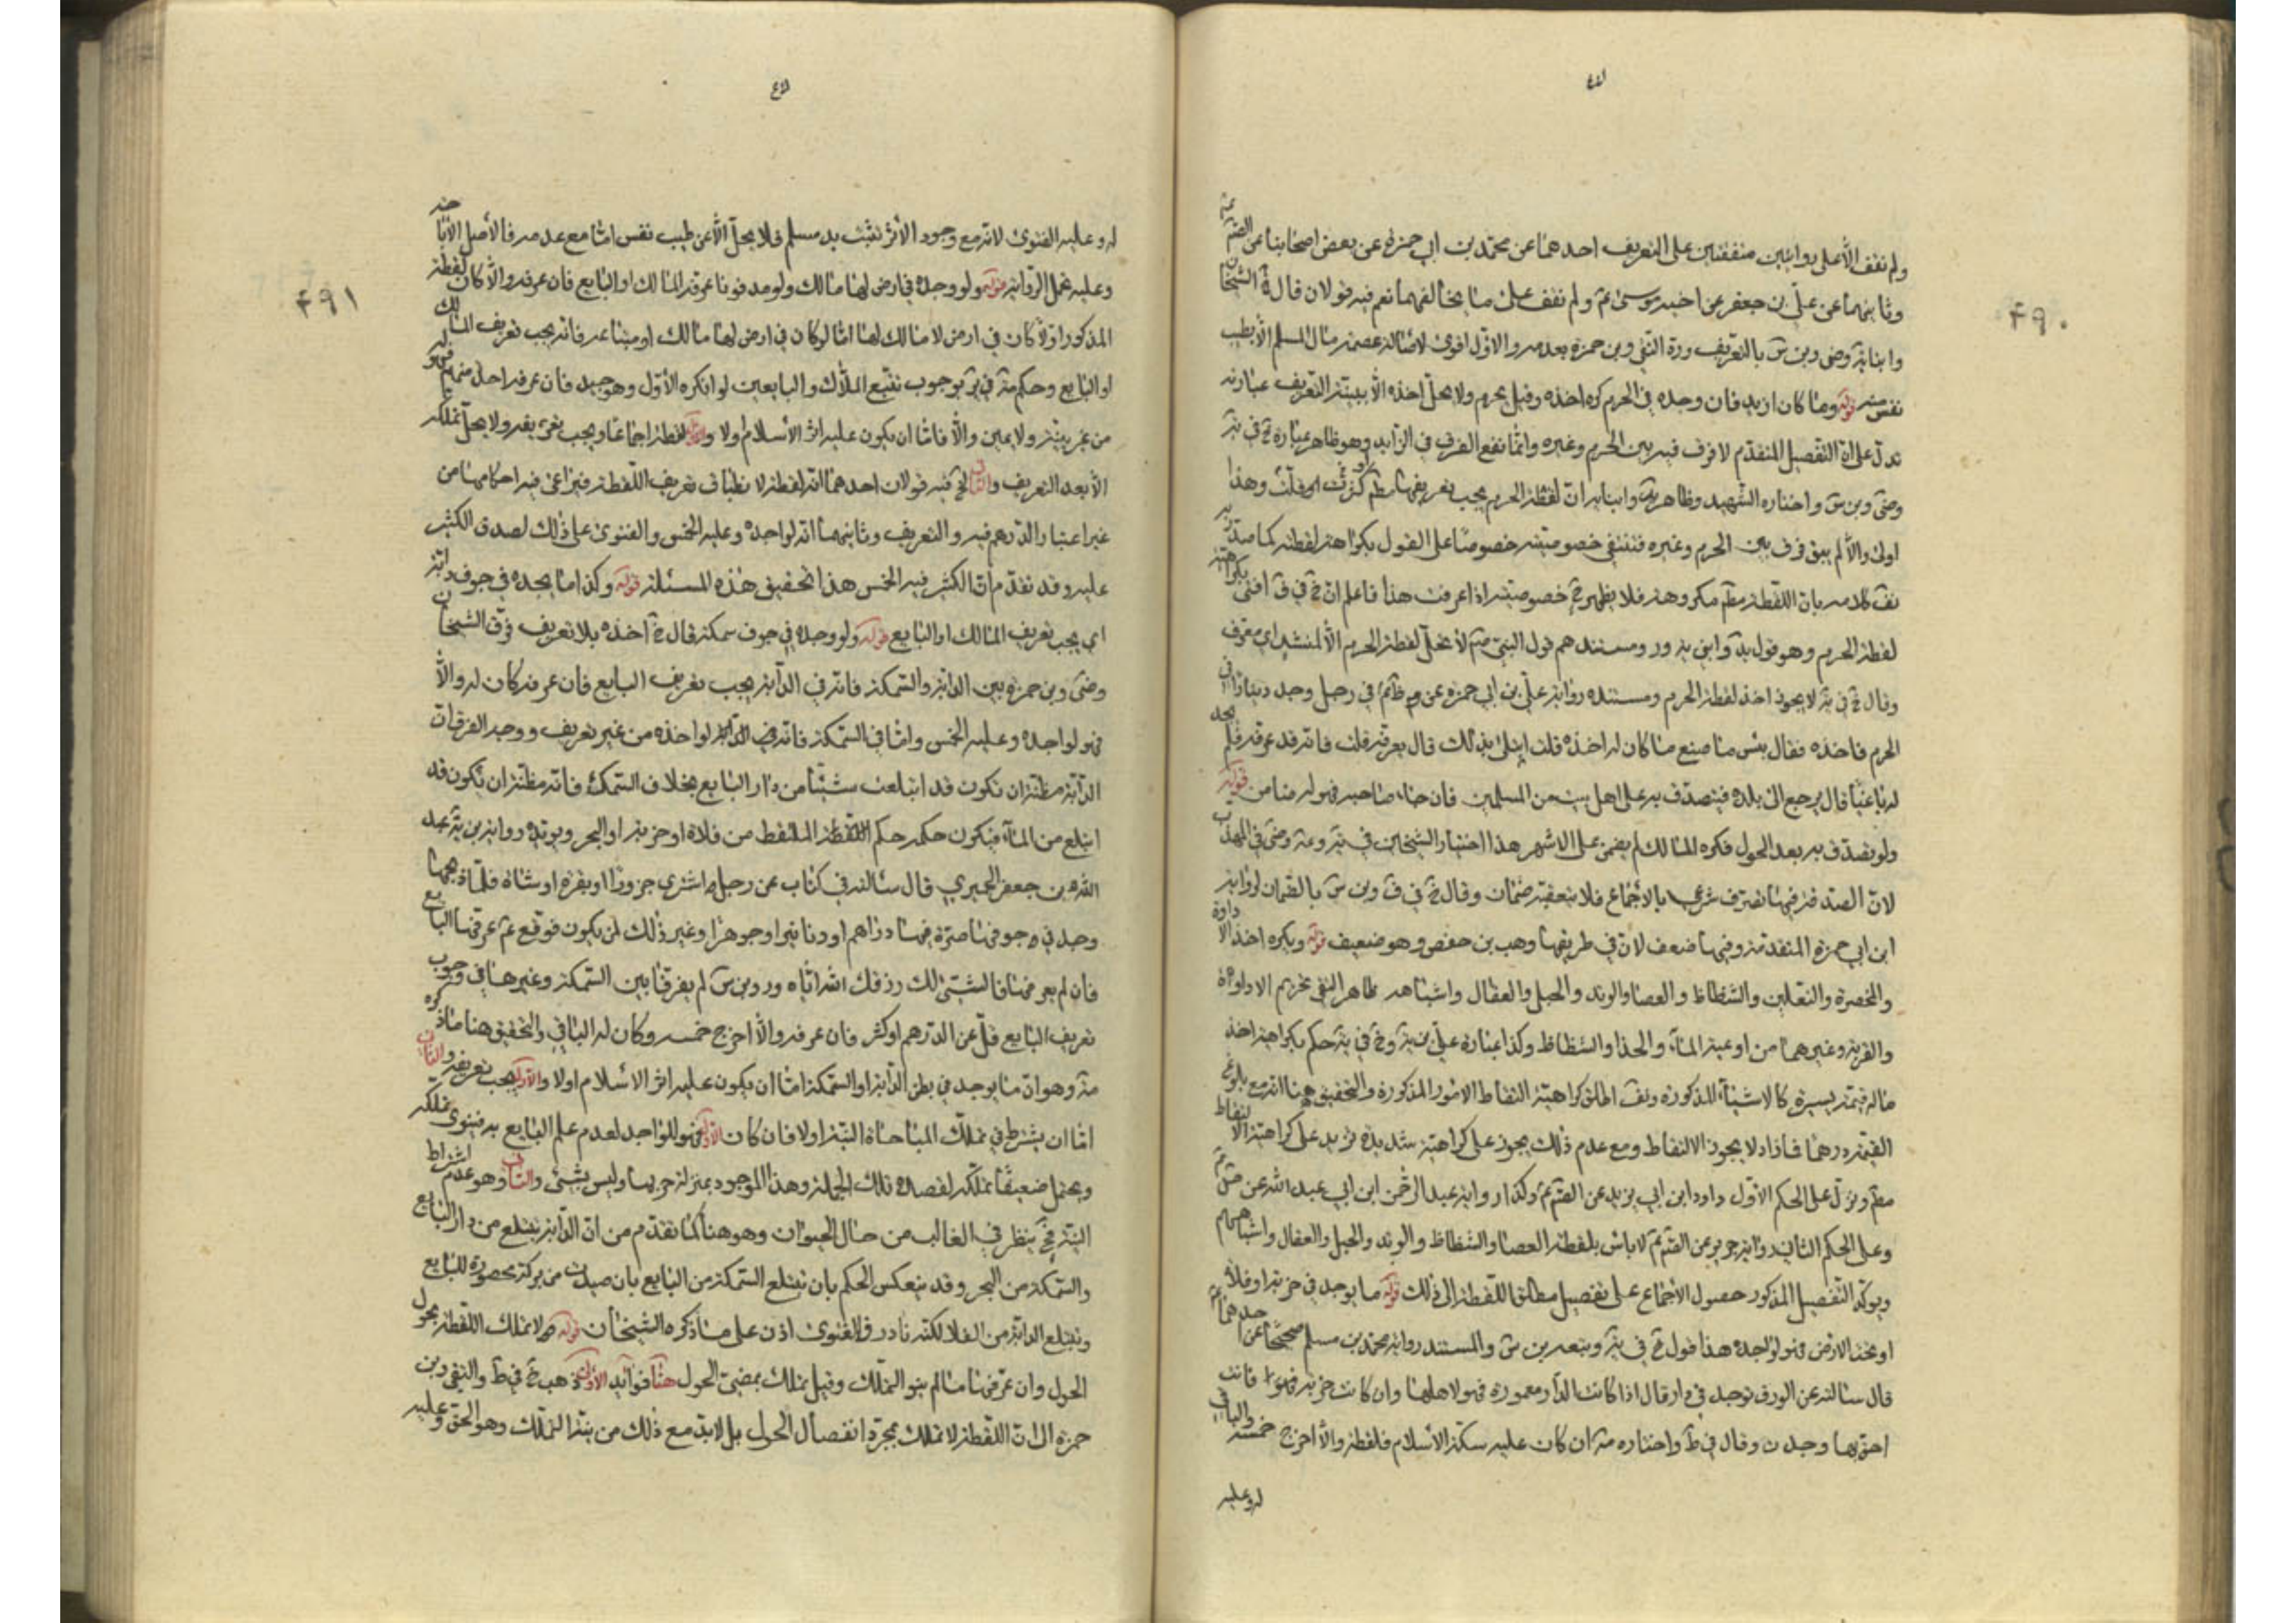 ۴۹۰
ولم نقف الا على روايتين متفقتين على التعريف احدهما عن محمد بن ابي حمزه عن بعض اصحابنا عن الصم
وثانيهما عن علي بن جعفر عن اخيه موسى ع م ولم نقف على ما يخالفهما نعم فيه قولان قال الشيخان
بالتعريف وبن حمزه بعدمه والاول اقوى لاصالة عصمة مال المسلم الا بطيب
نفس منه قوله وما كان ازيد فان وجده في الحرم كره اخذه وقيل يحرم ولا يحل اخذه الا بنية التعريف عبارته
تدل على ان التفصيل المتقدم لا فرق فيه بين الحرم وغيره وانما نفع الفرق في الزايد وهو ظاهر عبارة خ في ية
واختاره الشهيد وظاهر ان لقطة الحرم يجب تعريفها مطم كثرت او قلت وهذا
اولى والا لم يبق فرق بين الحرم وغيره فتنتفي خصوصيته خصوصا على القول بكراهة لقطته كما صدر به
كلامه بان اللقطة مطم مكروهة فلا يظهر ح خصوصيته اذا عرفت هذا فاعلم ان خ في ف افتى بكراهية
لقطة الحرم وهو قول ومستندهم قول النبي صم لا تحل لقطة الحرم الا لمنشد اي معرف
وقال خ في ية لا يجوز اخذ لقطة الحرم ومستنده رواية علي بن ابي حمزه عن في رجل وجد دينارا في
الحرم فاخذه فقال بئس ما صنع ما كان له اخذه قلت ابتلى بذلك قال يعرفه قلت فانه قد عرفه فلم يجد
له باغيا قال يرجع الى بلده فيتصدق به على اهل بيت من المسلمين فان جاء صاحبه فهو له ضامن قوله
ولو تصدق به بعد الحول فكره المالك لم يضمن على الاشهر هذا اختيار الشيخين في
لان الصدقة فيها تصرف شرعي بالاجماع فلا يتعقبه ضمان وقال خ في ف وبن س بالضمان لرواية
ابن ابي حمزة المتقدمة وفيها ضعف لان في طريقها وهب بن حفص وهو ضعيف قوله ويكره اخذ الاداوة
والمخصرة والنعلين والشظاظ والعصا والوتد والحبل والعقال واشباهه ظاهر التقي تحريم الاداواة
والقربة وغيرهما من اوعية الماء والحذا والشظاظ وكذا عبارة علي بن ية وخ في ية حكم بكراهية اخذ
ماله قيمة يسيرة كالاشياء المذكورة اطلق كراهية التقاط الامور المذكورة والتحقيق هنا انه مع بلوغ
القيمة درهما فازاد لا يجوز الالتقاط ومع عدم ذلك يجوز على كراهية شديدة تزيد على كراهية الالتقاط
مطم ونزل على الحكم الاول داود ابن ابي يزيد عن الصم ع م وكذا رواية عبد الرحمن ابن ابي عبد الله عن
وعلى الحكم الثاني رواية حريز عن الصم ع م لا باس بلقطة العصا والشظاظ والوتد والحبل والعقال واشباههم
ويوكد التفصيل المذكور حصول الاجماع على تفصيل مطلق اللقطة الى ذلك قوله ما يوجد في خربة او فلاة
او تحت الارض فهو لواجده هذا قول خ في ية وتبعه بن س والمستند رواية محمد بن مسلم صحيحا عن احدهما ع
قال سالته عن الورق توجد في دار قال اذا كانت الدار معمورة فهو لاهلها وان كانت خربة فانت
احق بها وجدت وقال في ط واختاره ان كان عليه سكة الاسلام فلقطة والا اخرج خمسه والباقي
له وعليه
۴۹۱
له وعليه الفتوى لانه مع وجود الاثر تثبت يد مسلم فلا يحل الا عن طيب نفس اما مع عدمه فالاصل الاباحه
وعليه تحمل الرواية قوله ولو وجده في ارض لها مالك ولو مدفونا عرفه المالك او البايع فان عرفه والا كان لقطة
المذكور اولا كان في ارض لا مالك لها اما لو كان في ارض لها مالك او مبتاعه فانه يجب تعريف المالك
او البايع وحكم بوجوب تتبع الملاك والبايعين لو انكره الاول وهو جيد فان عرفه احد منهم فهو له
من غير بينة ولا يمين والا فاما ان يكون عليه اثر الاسلام اولا لقطة اجماعا ويجب تعريفه ولا يحل تملكه
الا بعد التعريف والثاني فيه قولان احدهما انه لقطة لاطباق تعريف اللقطة فيراعى فيه احكامها من
غير اعتبار الدرهم فيه والتعريف وثانيهما انه لواجده وعليه الخمس والفتوى على ذلك لصدق الكنز
عليه وقد تقدم ان الكنز فيه الخمس هذا تحقيق هذه المسئلة قوله وكذا ما يجده في جوف دابة
اي يجب تعريف المالك او البايع قوله ولو وجده في جوف سمكة قال خ اخذه بلا تعريف فرق الشيخان
وبن حمزه بين الدابة والسمكة فانه في الدابة يجب تعريف البايع فان عرفه كان له والا
فهو لواجده وعليه الخمس واما في السمكة فانه لواخذه من غير تعريف ووجه الفرق ان
الدابة مظنة ان تكون قد ابتلعت شيئا من دار البايع بخلاف السمك فانه مظنة ان يكون قد
ابتلع من الماء فيكون حكمه حكم اللقطة الملتقط من فلاة او خربة او البحر ويوئده رواية بن ية عبد
الله بن جعفر الحميري قال سالته في كتاب عن رجل اشترى جزورا او بقرة او شاة فلما ذبحها
وجد في جوفها صرة فيها دراهم او دنانير او جوهرا وغير ذلك لمن يكون فوقع ع م عرفها البايع
فان لم يعرفها فالشيئ لك رزقك الله اياه لم يفرقا بين السمكة وغيرها في وجوب
تعريف البايع قل عن الدرهم او كثر فان عرفه والا اخرج خمسه وكان له الباقي والتحقيق هنا ما ذكره
وهو ان ما يوجد في بطن الدابة او السمكة اما ان يكون عليه اثر الاسلام اولا والاول يجب تعريفه والثاني
اما ان يشترط في تملك المباحات النية اولا فان كان الاول فهو للواجد لعدم علم البايع به فينوى تملكه
ويحتمل ضعيفا تملكه لقصده تلك الجملة وهذا الموجود بمنزلة جزئها وليس بشيئ والثاني وهو عدم اشتراط
النية فح ينظر في الغالب من حال الحيوان وهو هنا كما تقدم من ان الدابة تبتلع من دار البايع
والسمكة من البحر وقد ينعكس الحكم بان تبتلع السمكة من البايع بان صيدت من بركة محصورة للبايع
وتبتلع الدابة من الفلا لكنه نادر فالفتوى اذن على ما ذكره الشيخان قوله لا تملك اللقطة بحول
الحول وان عرفها ما لم ينو التملك وقيل تملك بمضي الحول هنا فوائد الاولى ذهب خ في ط والتقي وبن
حمزه الى ان اللقطة لا تملك بمجرد انفصال الحول بل لابد مع ذلك من نية التملك وهو الحق وعليه